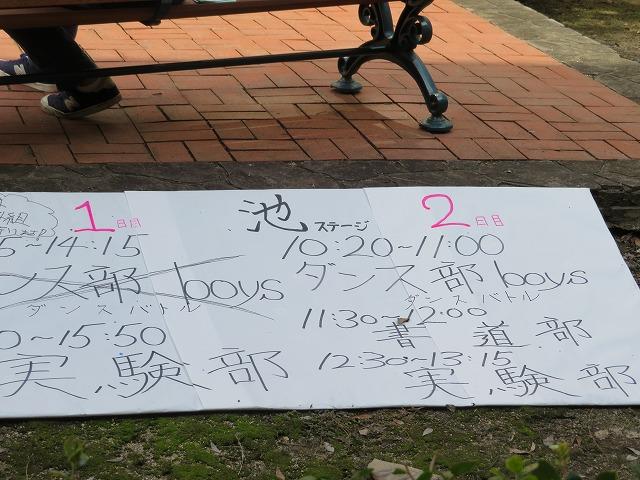 1日目
池ステージ
2日目
~14:15
ンス部 boys
ダンスバトル
~15:50
実験部
10:20~11:00
ダンス部 boys
ダンスバトル
11:30~12:00
書道部
12:30~13:15
実験部